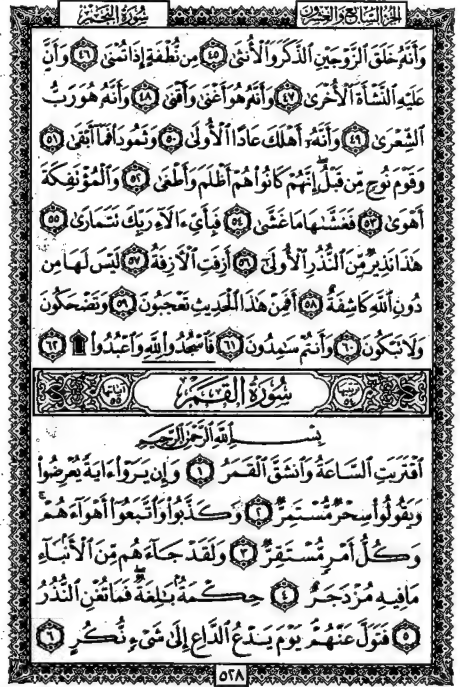 الجزء السابع والعشرون
سورة النجم
وَأَنَّهُۥ خَلَقَ ٱلزَّوْجَيْنِ ٱلذَّكَرَ وَٱلْأُنثَىٰ ٤٥ مِن نُّطْفَةٍ إِذَا تُمْنَىٰ ٤٦ وَأَنَّ
عَلَيْهِ ٱلنَّشْأَةَ ٱلْأُخْرَىٰ ٤٧ وَأَنَّهُۥ هُوَ أَغْنَىٰ وَأَقْنَىٰ ٤٨ وَأَنَّهُۥ هُوَ رَبُّ
ٱلشِّعْرَىٰ ٤٩ وَأَنَّهُۥٓ أَهْلَكَ عَادًا ٱلْأُولَىٰ ٥٠ وَثَمُودَا۟ فَمَآ أَبْقَىٰ ٥١
وَقَوْمَ نُوحٍ مِّن قَبْلُ ۖ إِنَّهُمْ كَانُوا۟ هُمْ أَظْلَمَ وَأَطْغَىٰ ٥٢ وَٱلْمُؤْتَفِكَةَ
أَهْوَىٰ ٥٣ فَغَشَّىٰهَا مَا غَشَّىٰ ٥٤ فَبِأَىِّ ءَالَآءِ رَبِّكَ تَتَمَارَىٰ ٥٥
هَٰذَا نَذِيرٌ مِّنَ ٱلنُّذُرِ ٱلْأُولَىٰٓ ٥٦ أَزِفَتِ ٱلْءَازِفَةُ ٥٧ لَيْسَ لَهَا مِن
دُونِ ٱللَّهِ كَاشِفَةٌ ٥٨ أَفَمِنْ هَٰذَا ٱلْحَدِيثِ تَعْجَبُونَ ٥٩ وَتَضْحَكُونَ
وَلَا تَبْكُونَ ٦٠ وَأَنتُمْ سَٰمِدُونَ ٦١ فَٱسْجُدُوا۟ لِلَّهِ وَٱعْبُدُوا۟ ۩ ٦٢
ترتيبها ٥٤ سُورَةُ القَمَرِ آياتها ٥٥
بِسْمِ ٱللَّهِ ٱلرَّحْمَٰنِ ٱلرَّحِيمِ
ٱقْتَرَبَتِ ٱلسَّاعَةُ وَٱنشَقَّ ٱلْقَمَرُ ١ وَإِن يَرَوْا۟ ءَايَةً يُعْرِضُوا۟
وَيَقُولُوا۟ سِحْرٌ مُّسْتَمِرٌّ ٢ وَكَذَّبُوا۟ وَٱتَّبَعُوٓا۟ أَهْوَآءَهُمْ ۚ
وَكُلُّ أَمْرٍ مُّسْتَقِرٌّ ٣ وَلَقَدْ جَآءَهُم مِّنَ ٱلْأَنۢبَآءِ
مَا فِيهِ مُزْدَجَرٌ ٤ حِكْمَةٌۢ بَٰلِغَةٌ ۖ فَمَا تُغْنِ ٱلنُّذُرُ
٥ فَتَوَلَّ عَنْهُمْ ۘ يَوْمَ يَدْعُ ٱلدَّاعِ إِلَىٰ شَىْءٍ نُّكُرٍ ٦
٥٢٨